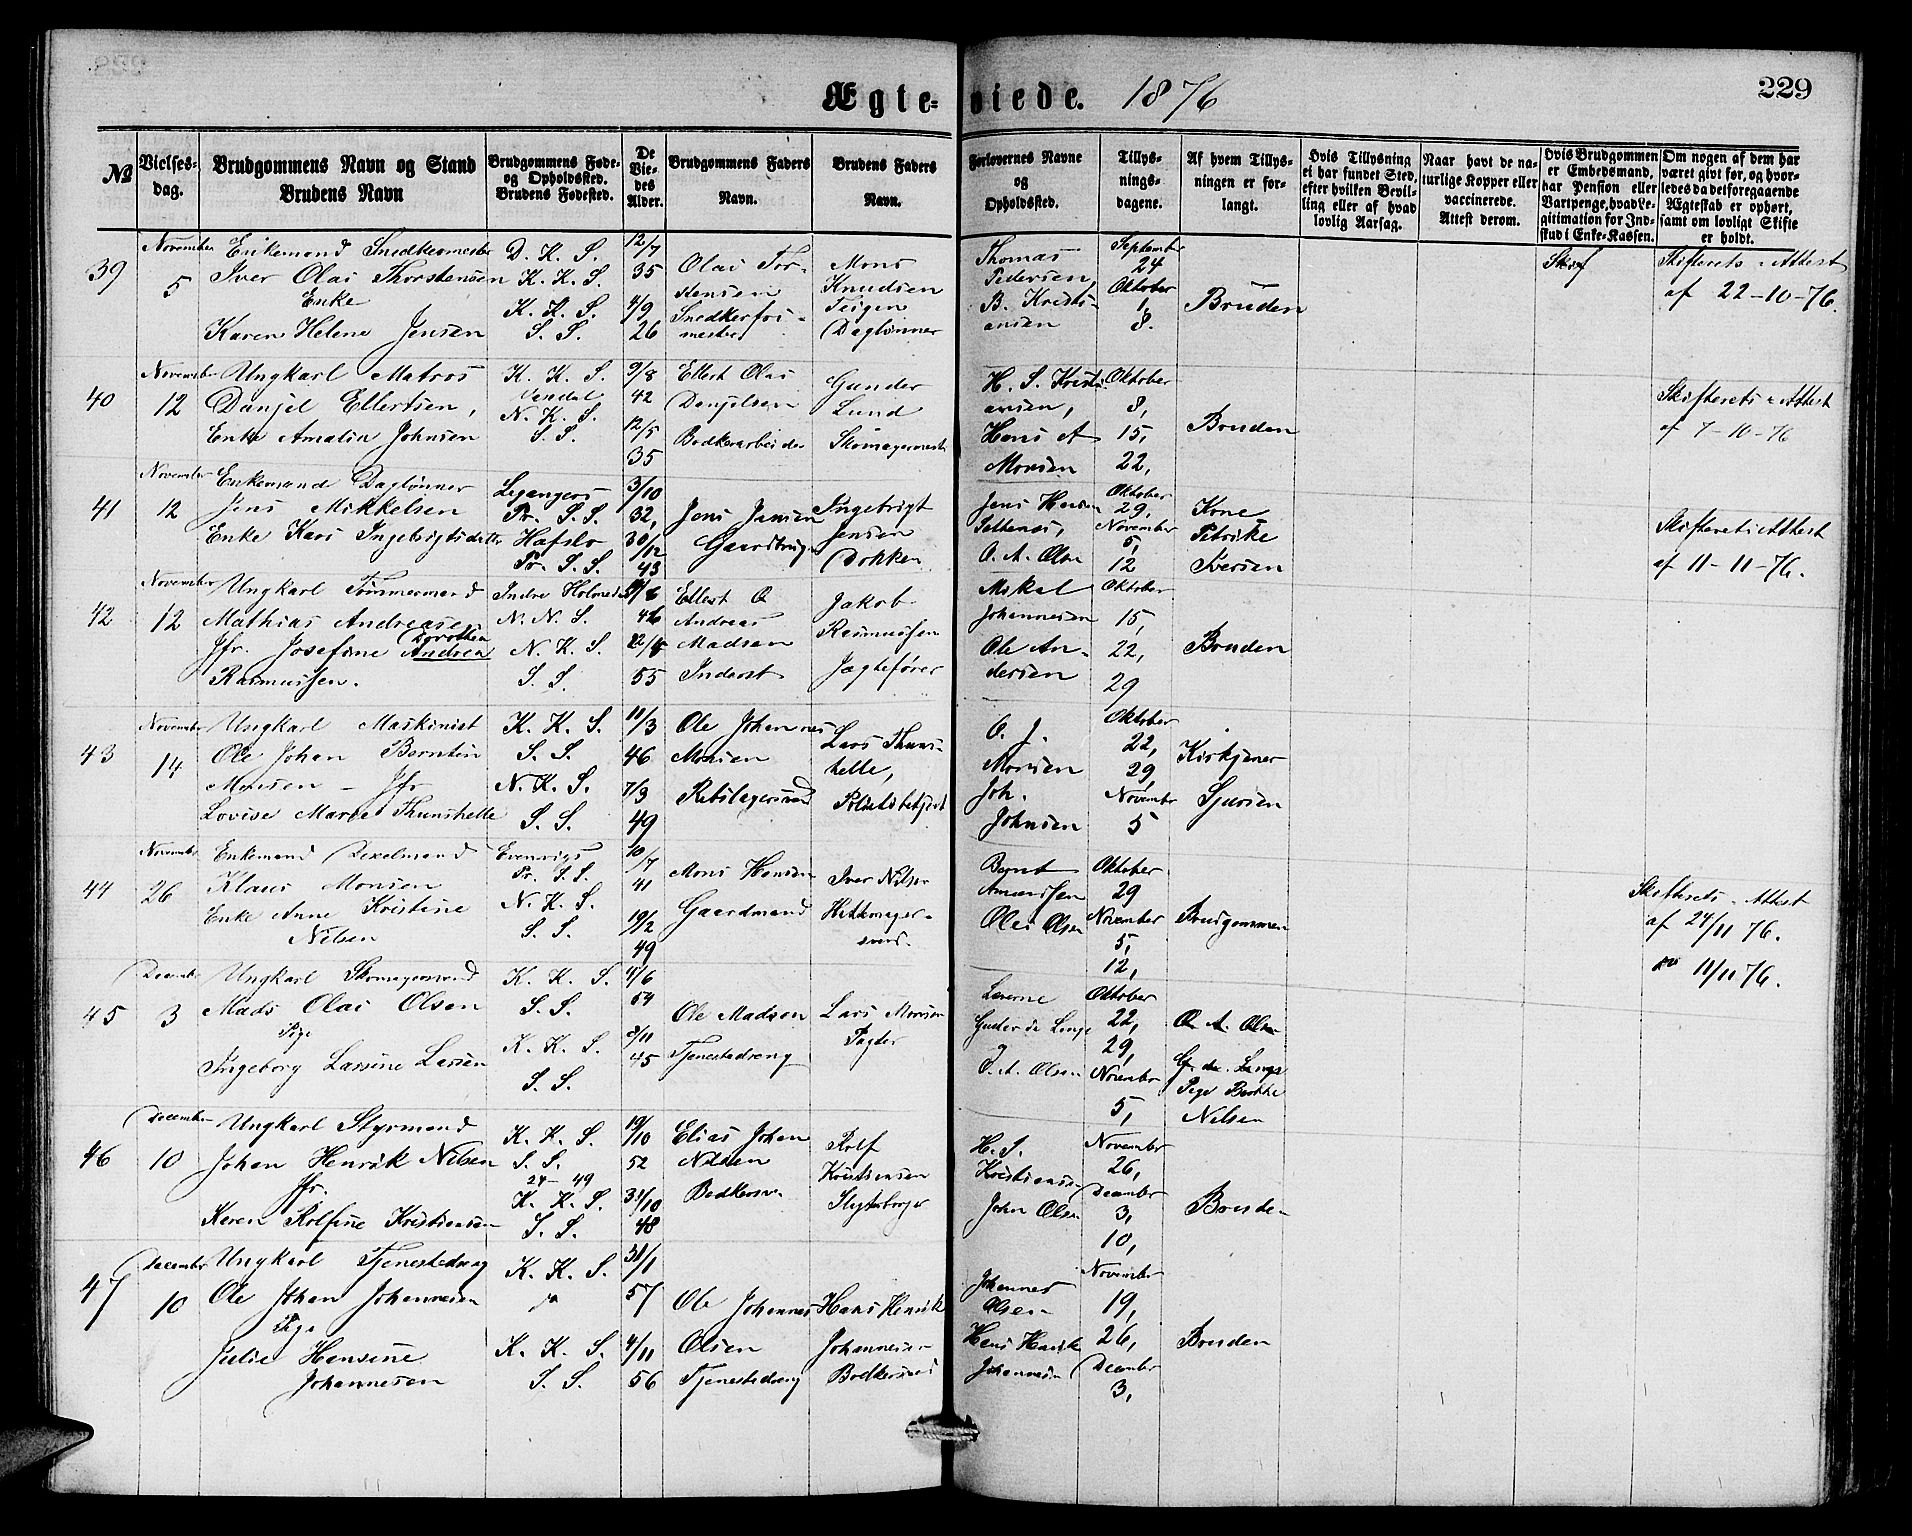 Ægteviede. 1876
229
№
Vielsesdag.
Brudgommens Navn og Stand
Brudens Navn
Brudgommens Føde- og Opholdssted.
Brudens Fødested.
De Viedes Alder.
Brudgommens Faders Navn.
Brudens Faders Navn.
Forlovernes Navne og Opholdssted.
Tillysningsdagene.
Af hvem Tillysningen er forlangt.
Hvis Tillysning ei har fundet Sted, efter hvilken Bevilling eller af hvad lovlig Aarsag.
Naar havt de naturlige Kopper eller vaccinerede. Attest derom.
Hvis Brudgommen er Embedsmand, har Pension eller Vartpenge, hvad Legitimation for Indskud i Enke-Kassen.
Om nogen af dem har været gift før, og hvorledes da det foregaaende Ægteskab er ophørt, samt om lovligt Skifte er holdt.
39
November
5
Enkemand Snedkermester
Iver Olai Thorstensen
Enke
Karen Helene Jensen
D. K. S.
K. K. S.
K. K. S.
S. S.
12/7
35
4/9
26
Olai Torstensen
Snedkerformester
Mons
Knudsen
Teigen
Dagtønner
Thomas
Pedersen,
B. Kristiansen
September
24
Oktober
1,
8.
Bruden
Skifterets Attest
af 22-10-76.
40
November
12
Ungkarl Matros
Danjel Ellertsen,
Enke Amalia Johnsen
K. K. S.
N. K. S.
S. S.
9/8
42
12/5
35
Ellert Olas
Danjelsen
Bødkerarbeider
Gunder
Lund
Skomagermest
H. S. Kristiansen,
Hans A
Monsen
Oktober
8,
15,
22,
Bruden
Skifterets Attest
af 7-10-76
41
November
12
Enkemand Dagtønner
Jens Mikkelsen
Enke Kari Ingebrigtsdatter
Legangers
Pr. S. S.
Hafslo
Pr. S. S.
3/10
32,
30/12
43
Jens Jansen
Gaardbruger
Ingebrigt
Jensen
Dokken
Jens Hansen
O. A. Olsen
Oktober
29,
November
5,
12
Kone
Petrike
Iversen
Skifterets Attest
af 11-11-76.
42
November
12
Ungkarl Tømmermand
Mathias Andreasen
Jfr. Josefine Dorothea Andrea
Rasmussen.
Indre Holmedal
N. N. S.
N. K. S.
S. S.
46
55
Ellert O
Andreas
Madsen
Inderst
Jakob
Rasmussen
Jagtefører
Mikal
Johannesen
Ole Andersen
Oktober
15,
22,
29
Bruden
43
November
14
Ungkarl Maskinist
Ole Johan Berntin
Monsen - Jfr
Lovise Marie Thunshelle
K. K. S.
S. S.
N. K. S.
S. S.
11/3
46
7/3
49
Ole Johannes
Monsen
Rebslagersvend
Lars Thunshelle,
Politibetjent
O. J.
Monsen
Joh.
Johnsen
Oktober
22,
29,
November
5
Kirkjener
Sjursen
44
November
26
Enkemand
Klaus Monsen
Enke Anne Kristine
Nilsen
Evenvigs
Pr. S. S.
N. K. S.
S. S.
10/7
41
19/2
49
Mons Hansen
Gaardmand
Iver Nilsen
Hattemagersvend.
Bernt
Amundsen
Ole Olsen
Oktober
29
November
5,
12,
Brudgommen
Skifterets Attest
af 24/11 76.
11/11 76.
45
December
3
Ungkarl Skomagersvend
Mads Olai Olsen
Pige
Ingeborg Lassine Larsen
K. K. S.
S. S.
K. K. S.
S. S.
4/6
54
8/11
45
Ole Madsen
Tjenestedreng
Lars Monsen
Pagter
Læerne
Gust de Lange
O. A. Olsen
Oktober
22,
29,
November
5,
O. A. Olsen
G. de Lange
Pige Berthe
Nilsen
46
December
10
Ungkarl Styrmand
Johan Henrik Nilsen
Jfr.
Karen Rolfine Kristiansen
K. K. S.
S. S.
24 - 49
K. K. S.
S. S.
19/10
52
31/10
48
Elias Johan
Nilsen
Bødkersv.
Rolf
Kristiansen
Slagterborger
H. S.
Kristiansen
John Olsen
November
26,
December
3,
10,
Bruden
47
December
10
Ungkarl Tjenestedreng
Ole Johan Johannesen
Pige
Julie Hansine
Johannesen
K. K. S.
K. K. S.
S. S.
31/1
57
4/11
56
Ole Johannes
Olsen
Tjenestedreng
Hans Henrik
Johannesen
Bødkersvend
Johannes
Olsen
Hans Henrik
Johannesen
November
19,
26,
December
3,
Bruden